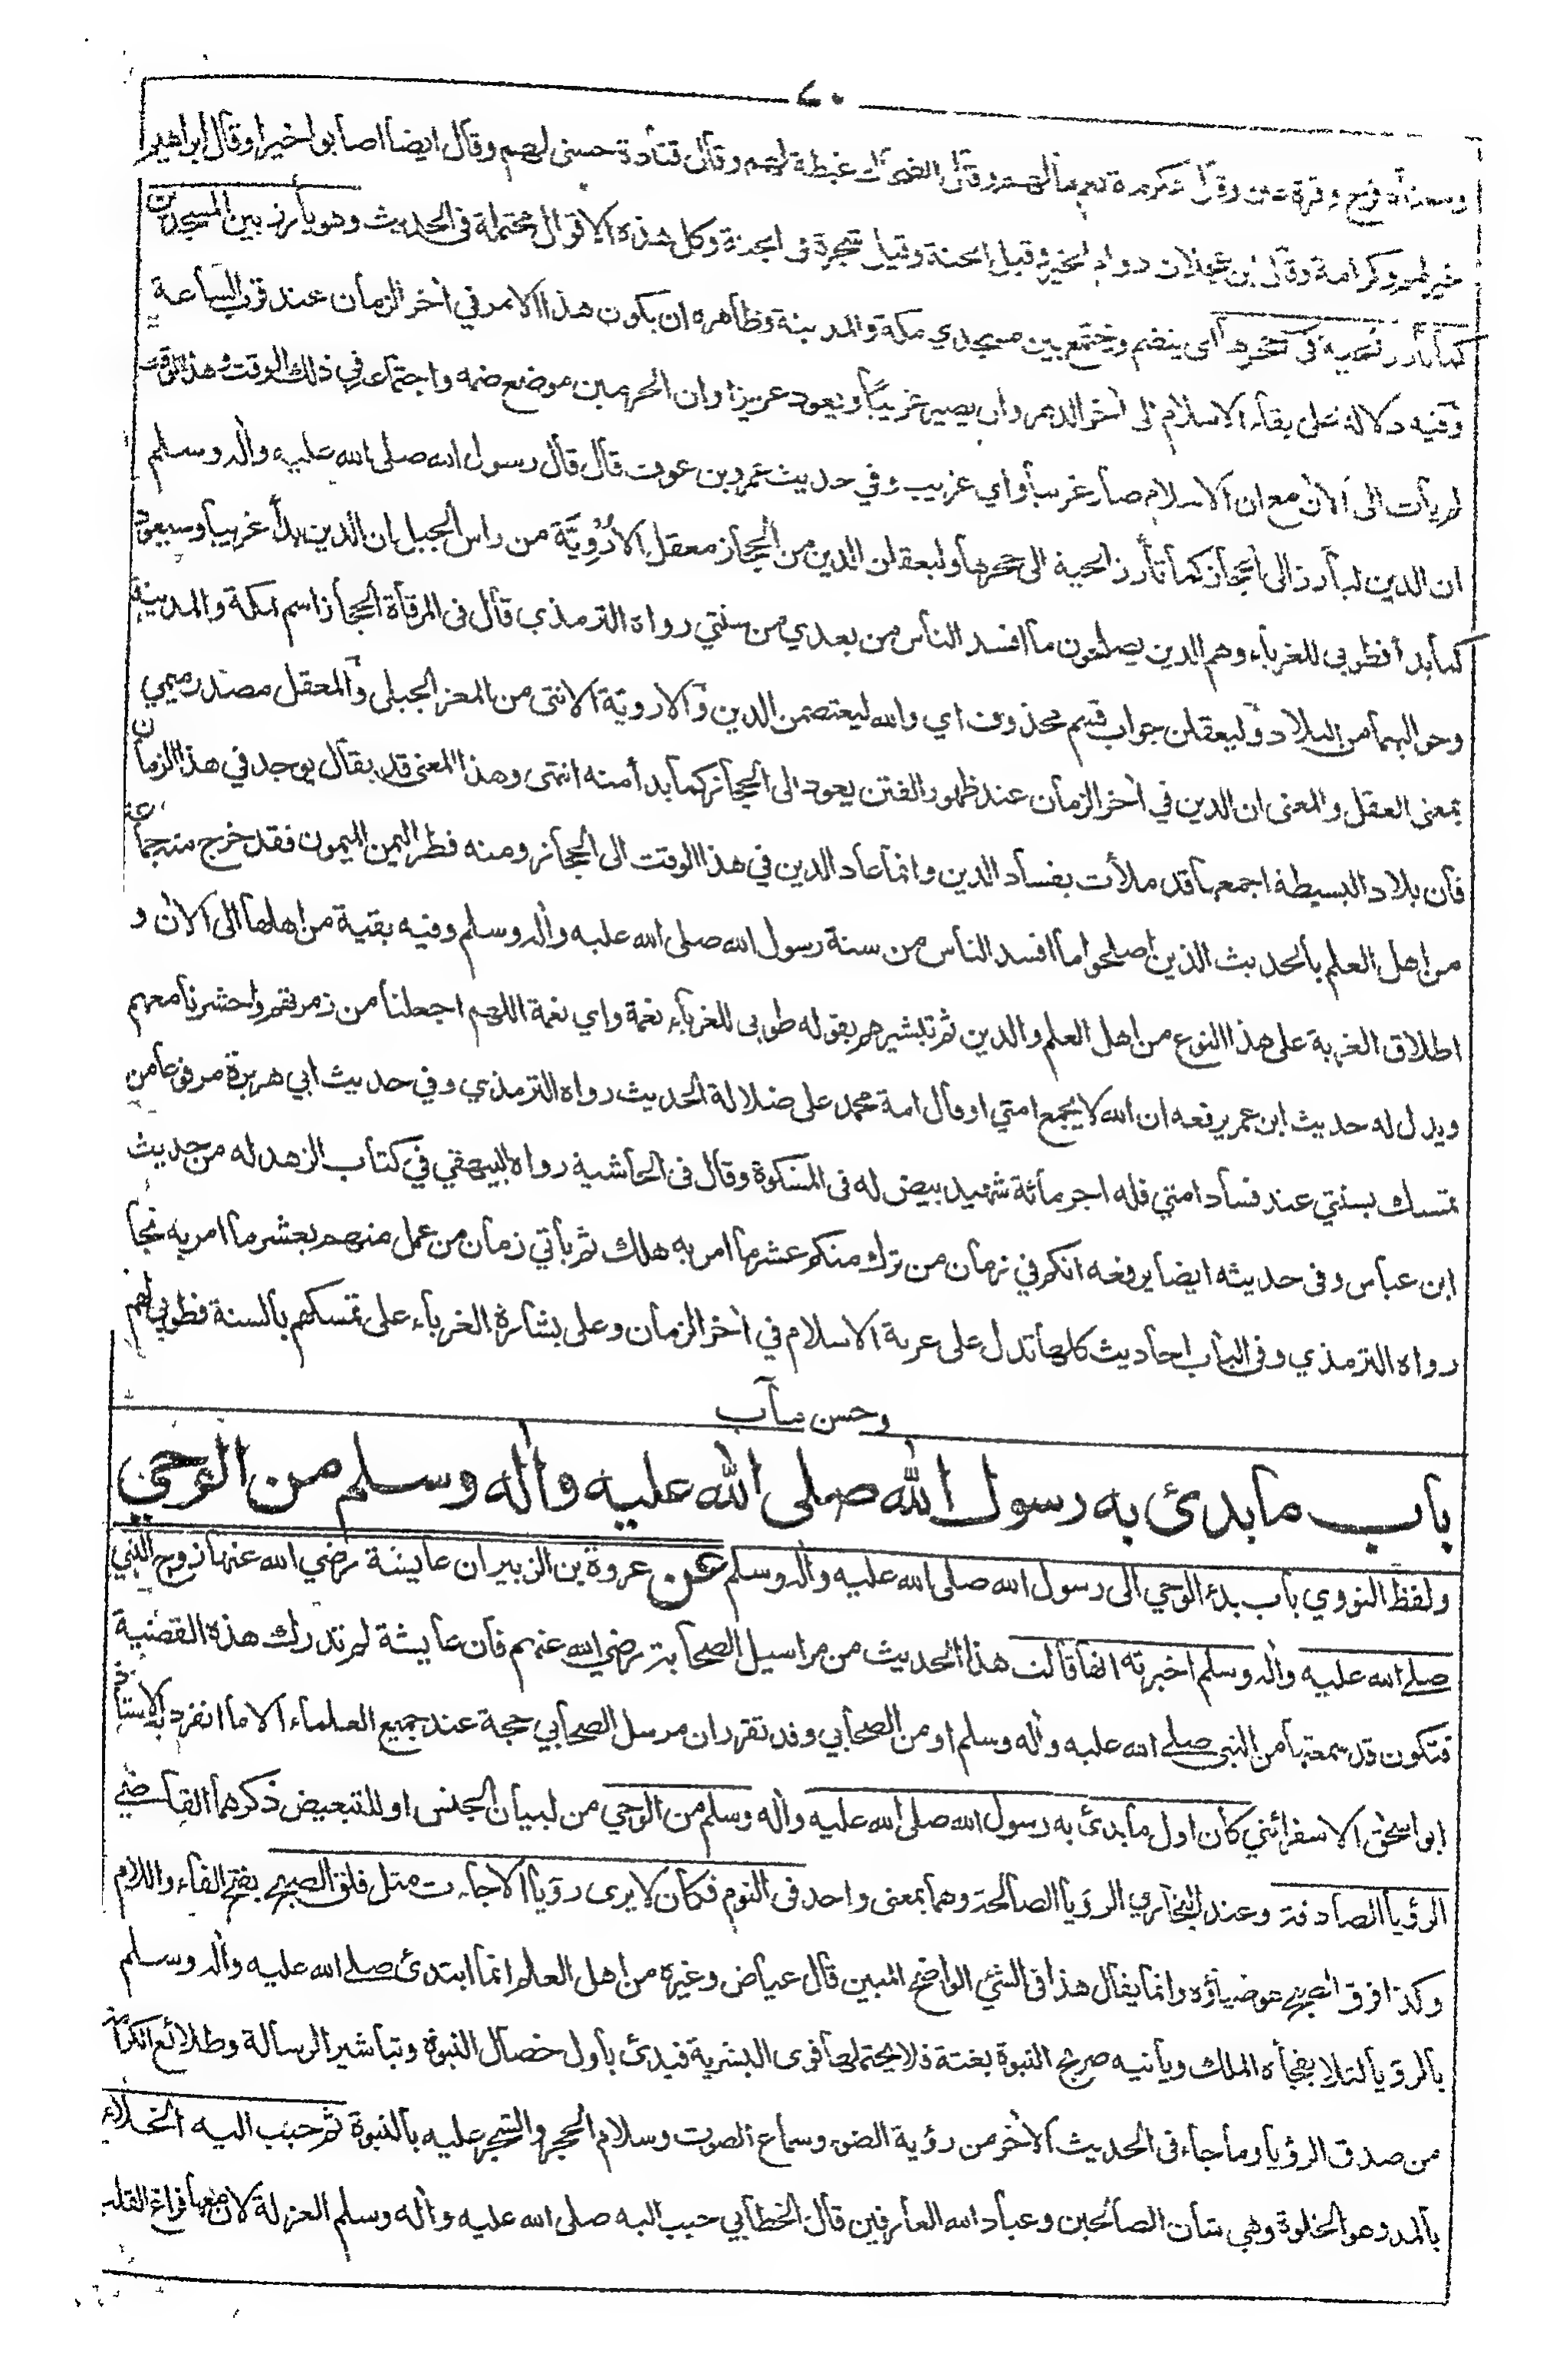 ٧٠
ومعناه فرح وقرة عين وقال عكرمة نعم مالهم وقال الضحاك غبطة لهم وقال قتادة حسنى لهم وقال ايضا اصابوا خيرا وقال ابراهيم
خير لهم وكرامة وقال ابن عجلان دوام الخير وقيل الجنة وقيل شجرة فى الجنة وكل هذه الاقوال محتملة فى الحديث وهو يأرز بين المسجدين
كما تأرز الحية فى جحرها اى ينضم ويجتمع بين مسجدي مكة والمدينة وظاهره ان يكون هذا الامر في أخر الزمان عند قرب الساعة
وفيه دلالة على بقاء الاسلام الى أخر الدهر وان يصير غريبًا ويعود عزيزا وان الحرمين موضع ضمه واجتماعه في ذلك الوقت وهذا الوقت
لم يأت الى الأن مع ان الاسلام صار غريبا واي غريب وفي حديث عمرو بن عوف قال قال رسول الله صلى الله عليه وأله وسلم
ان الدين ليأرز الى الحجاز كما تأرز الحية الى جحرها وليعقلن الدين من الحجاز معقل الأُرْوِيَّة من راس الجبل ان الدين بدأ غريبا وسيعود
كما بدأ فطوبى للغرباء وهم الذين يصلحون ما افسد الناس من بعدي من سنتي رواه الترمذي قال فى المرقاة الحجاز اسم مكة والمدينة
وحواليهما من البلاد وليعقلن جواب قسم محذوف اي والله ليعتصمن الدين والاروية الانثى من المعز الجبلى والمعقل مصدر ميمي
بمعنى العقل والمعنى ان الدين في أخر الزمان عند ظهور الفتن يعود الى الحجاز كما بدأ منه انتهى وهذا المعنى قد يقال يوجد في هذا الزمان
فان بلاد البسيطة اجمعها قد ملأت بفساد الدين وانما عاد الدين في هذا الوقت الى الحجاز ومنه قطر اليمن الميمون فقد خرج منه جماعة
من اهل العلم بالحديث الذين اصلحوا ما افسد الناس من سنة رسول الله صلى الله عليه وأله وسلم وفيه بقية من اهلها الى الأن و
اطلاق الغربة على هذا النوع من اهل العلم والدين ثم تبشيرهم بقوله طوبى للغرباء نعمة واي نعمة اللهم اجعلنا من زمرتهم واحشرنا معهم
ويدل له حديث ابن عمر يرفعه ان الله لا يجمع امتي او قال امة محمد على ضلالة الحديث رواه الترمذي وفي حديث ابي هريرة مرفوعا من
تمسك بسنتي عند فساد امتي فله اجر مائة شهيد بيض له فى المشكوة وقال فى الحاشية رواه البيهقي في كتاب الزهد له من حديث
ابن عباس وفى حديثه ايضا يرفعه انكم في زمان من ترك منكم عشر ما امر به هلك ثم يأتي زمان من عمل منهم بعشر ما امر به نجا
رواه الترمذي وفى الباب احاديث كلها تدل على غربة الاسلام في أخر الزمان وعلى بشارة الغرباء على تمسكهم بالسنة فطوبى لهم
وحسن مآب
باب ما بدئ به رسول الله صلى الله عليه وأله وسلم من الوحي
ولفظ النووي باب بدء الوحي الى رسول الله صلى الله عليه وأله وسلم عن عروة بن الزبير ان عايشة رضي الله عنها زوج النبي
صلے الله عليه وأله وسلم اخبرته انها قالت هذا الحديث من مراسيل الصحابة رضي الله عنهم فان عايشة لم تدرك هذه القضية
فتكون قد سمعتها من النبي صلے الله عليه وأله وسلم او من الصحابي وقد تقرر ان مرسل الصحابي حجة عند جميع العلماء الا ما انفرد به الاستاذ
ابو اسحق الاسفرائني كان اول ما بدئ به رسول الله صلى الله عليه وأله وسلم من الوحي من لبيان الجنس او للتبعيض ذكرهما القاضي
الرؤيا الصادقة وعند البخاري الرؤيا الصالحة وهما بمعنى واحد فى النوم فكان لا يرى رؤيا الا جاءت مثل فلق الصبح بفتح الفاء واللام
وكذا فرق الصبح هو ضياؤه وانما يقال هذا فى الشيء الواضح المبين قال عياض وغيره من اهل العلم انما ابتدئ صلے الله عليه وأله وسلم
بالرؤيا لئلا يفجأه الملك ويأتيه صريح النبوة بغتة فلا يحتملها قوى البشرية فبدئ بأول خصال النبوة وتباشير الرسالة وطلائع الكرامة
من صدق الرؤيا وما جاء فى الحديث الأخر من رؤية الضوء وسماع الصوت وسلام الحجر والشجر عليه بالنبوة ثم حبب اليه الخلاء
بالمد وهو الخلوة وهي شأن الصالحين وعباد الله العارفين قال الخطابي حبب اليه صلى الله عليه وأله وسلم العزلة لان معها فراغ القلب